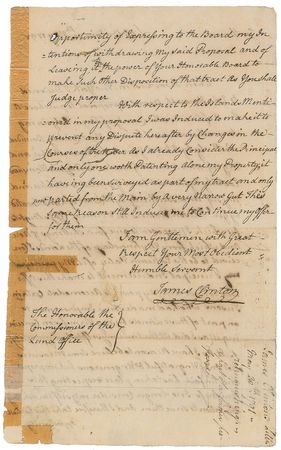 Opportunity of Expressing to the Board my In-
=tentions of withdrawing My said Proposal and of
Leaving it the power of Your Honorable Board to
make Such Other Disposition of that tract as You Shall
Judge proper
With respect to the Island Menti
oned in my proposal I was Induced to make it to
prevent any Dispute hereafter by Changes in the
Course of the River as I already Consider the Principal
and only one worth Patenting alone my Property it
having been Surveyed as part of my tract and only
parted from the Main by a very Narrow Gut This
Same Reason Still Induces me to Continue my offer
for them
I am Gentlemen with Great
Respect Your Most Obedient
Humble Servant
James Clinton
The Honorable the
Commissioners of the
Land Office
James Clinton's
May 30th 1791